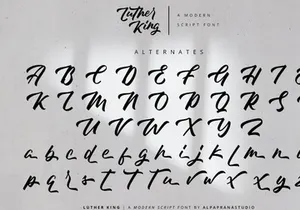 Luther
King
A MODERN
SCRIPT FONT
ALTERNATES
A B C D E F G H I
K L M N O P Q R S
U V W X Y Z
a b c d e f g h i j k l m n
p q r s t T T u v w x y z
LUTHER KING | A MODERN SCRIPT FONT BY ALPAPRANASTUDIO